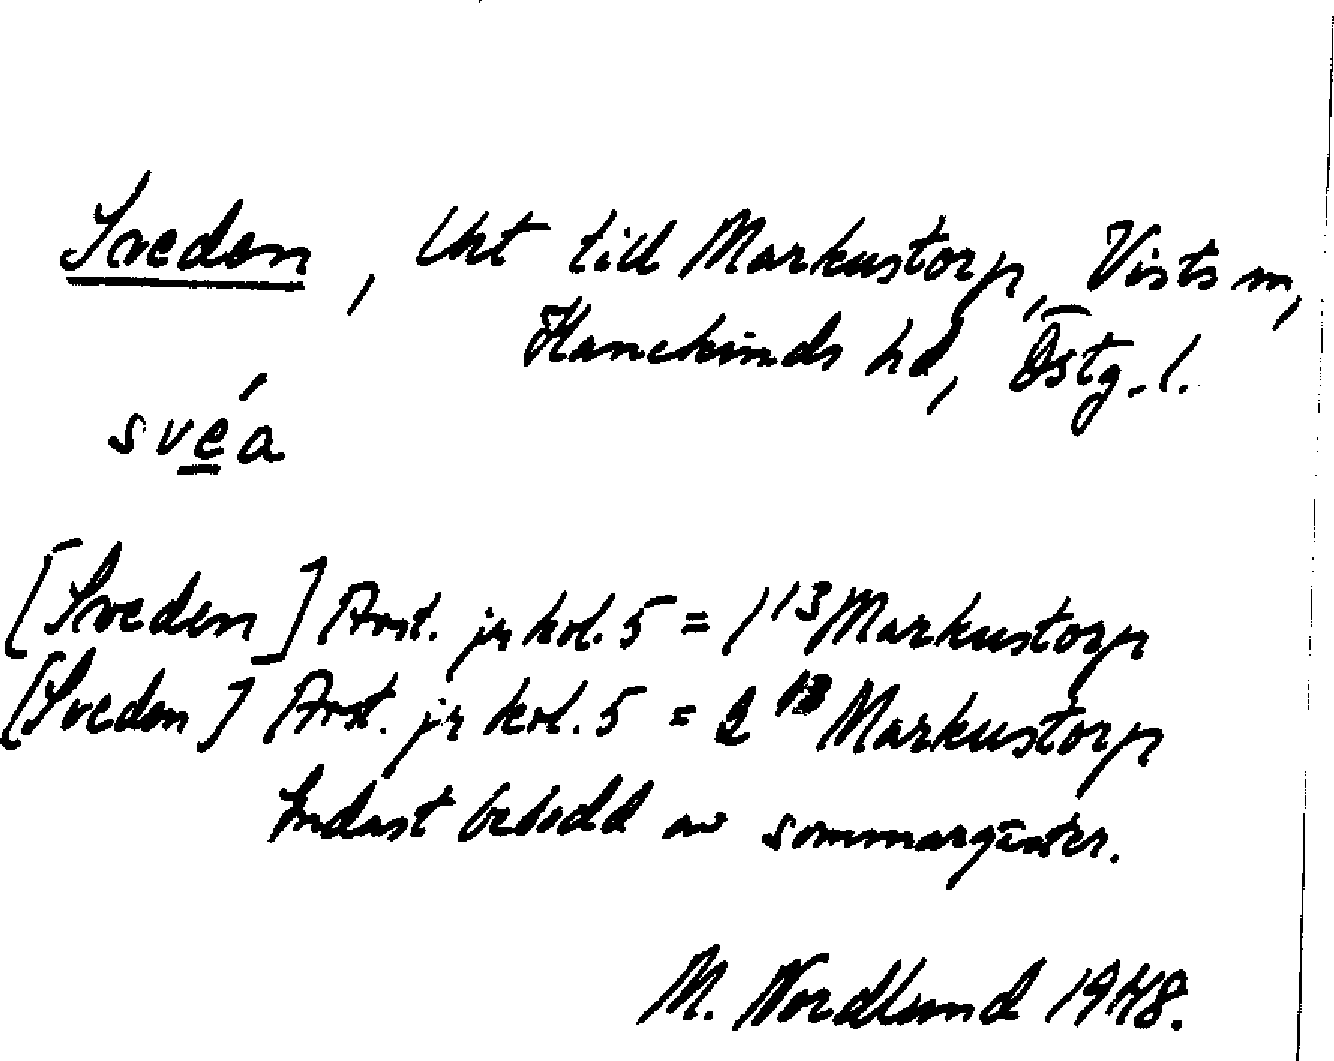 Sveden, Uht till Markustorp, Vists sn,
Hanekinds hd, Östg. l.
svéa
[Sveden] Avst. jr kol. 5 = 1¹³ Markustorp
[Sveden] Avst. jr kol. 5 = 2¹³ Markustorp
Endast bebodd av sommargäster.
M. Nordlund 1948.